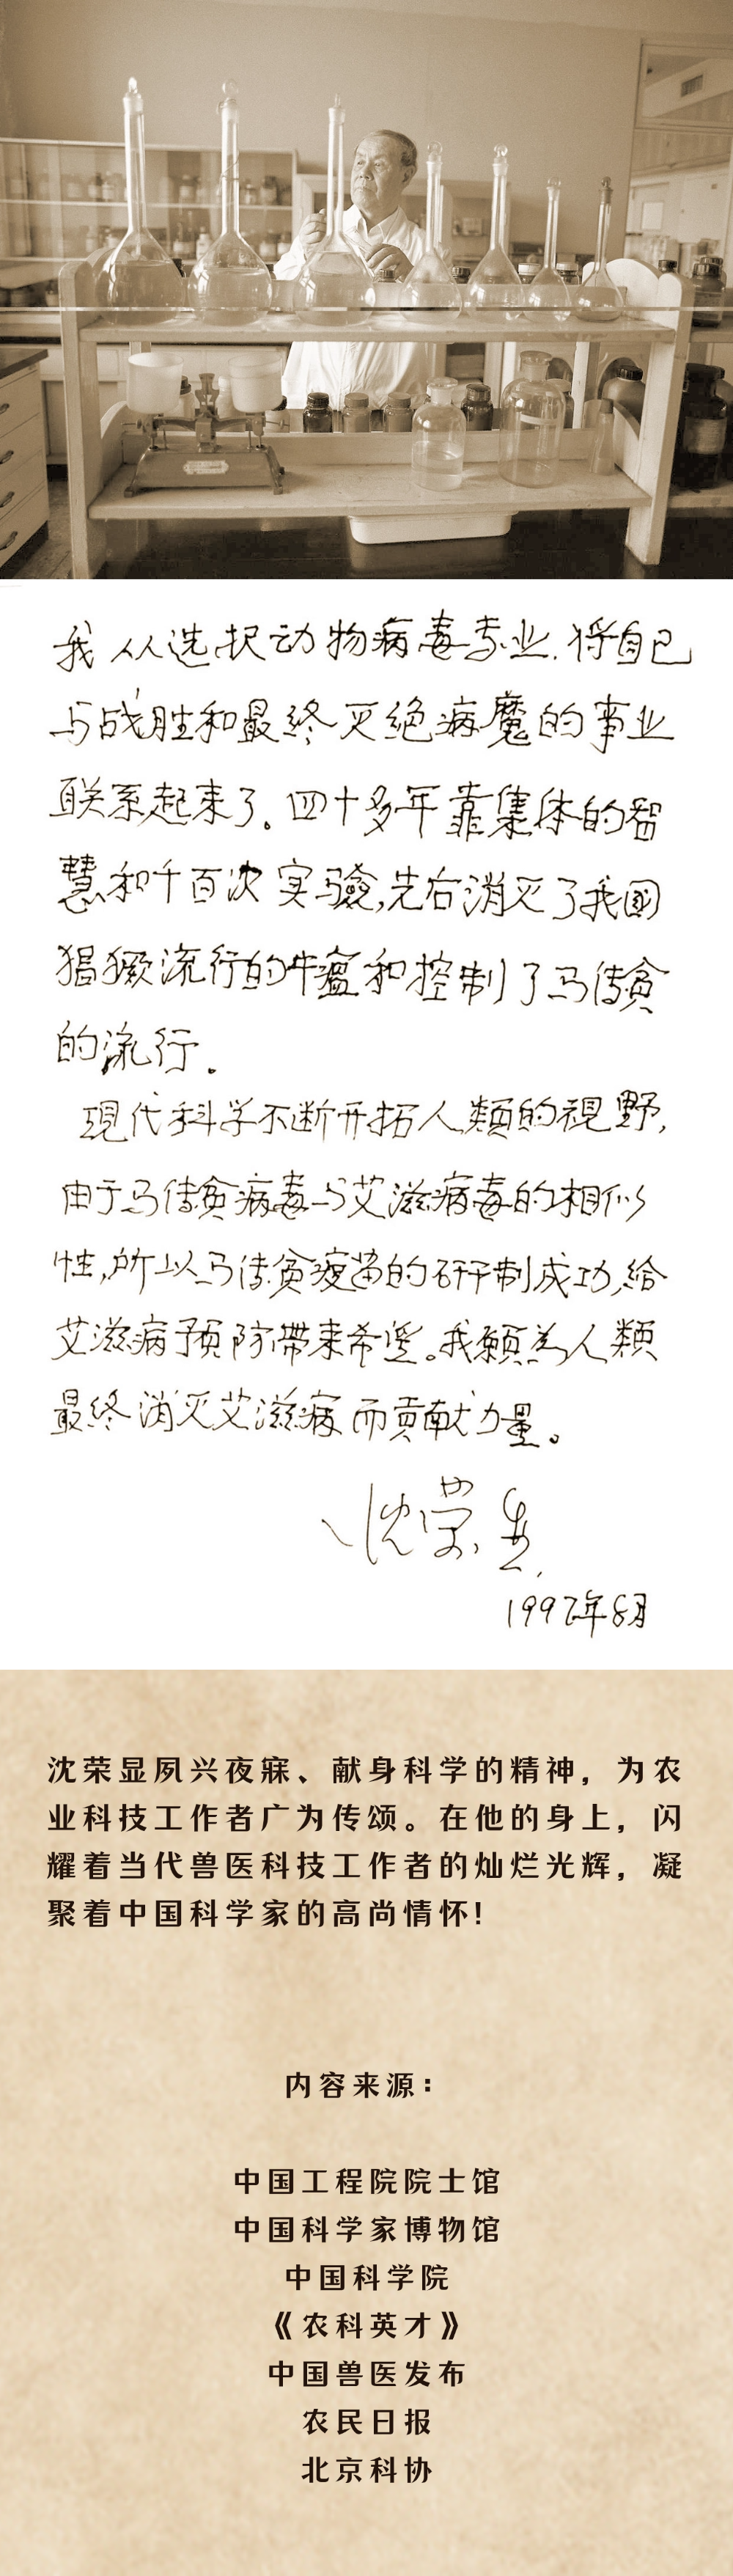 我从选择动物病毒专业.将自己
与战胜和最终灭绝病魔的事业
联系起来了。四十多年靠集体的智
慧和千百次实验,先后消灭了我國
猖獗流行的牛瘟和控制了马传贫
的流行.
现代科学不断开拓人類的視野,
由于马传贫病毒与艾滋病毒的相似
性,所以马传贫疫苗的研制成功,给
艾滋病预防带来希望。我願为人類
最终消灭艾滋病而贡献力量。
沈荣显.
1997年8月
沈荣显夙兴夜寐、献身科学的精神，为农
业科技工作者广为传颂。在他的身上，闪
耀着当代兽医科技工作者的灿烂光辉，凝
聚着中国科学家的高尚情怀！
内容来源：
中国工程院院士馆
中国科学家博物馆
中国科学院
《农科英才》
中国兽医发布
农民日报
北京科协